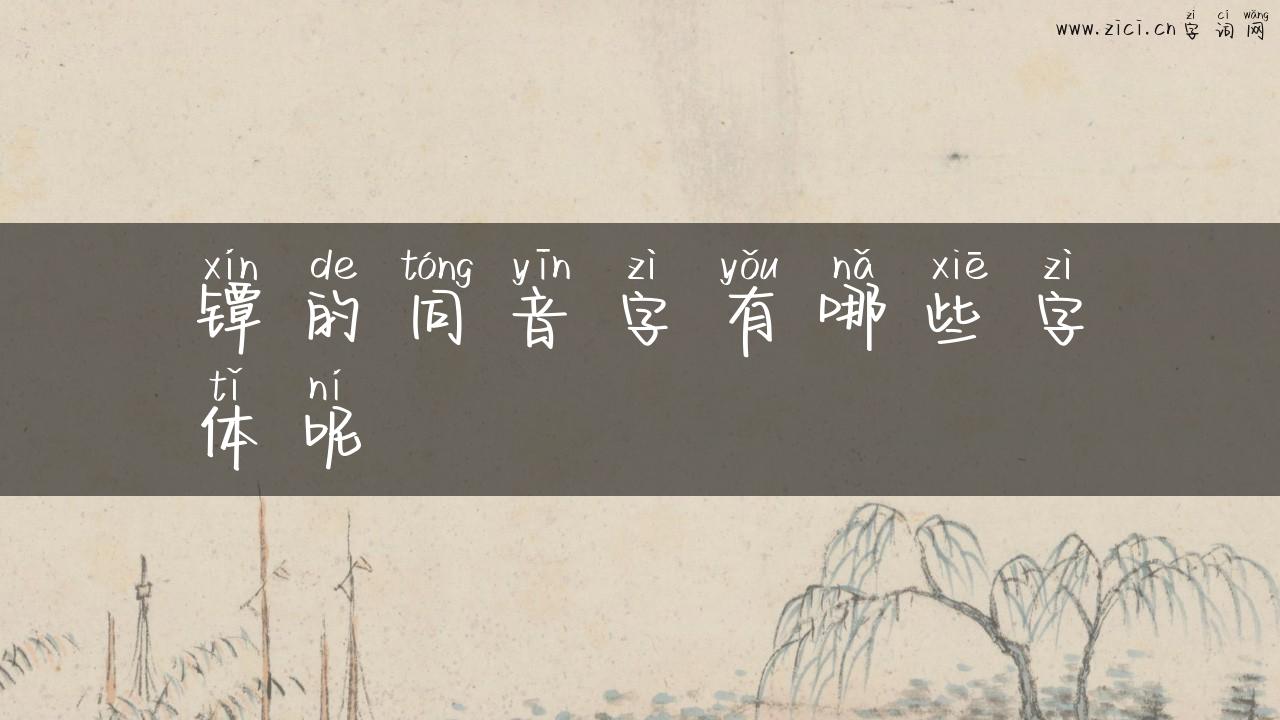 zì cí wǎng
www.zici.cn 字词网
xín de tóng yīn zì yǒu nǎ xiē zì
镡的同音字有哪些字
tǐ ní
体呢